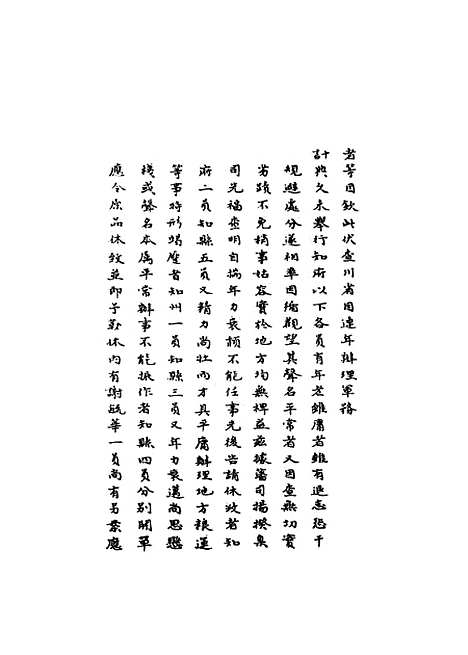 者等因欽此伏查川省因連年辦理軍務
計典久未舉行知府以下各員有年老雖庸者雖有進志恐干
規避處分遂相率因循觀望其聲名平常者又因查無切實
劣蹟不免稍事姑容實於地方均無裨益茲據藩司揚揆臬
司先福查明自揣年力衰頹不能任事先後告請休致者知
府二員知縣五員又精力尚壯而才具平庸辦理地方糧運
等事特形竭蹷者知州一員知縣三員又年力衰邁尚思戀
棧或聲名本屬平常辦事不能振作者知縣四員分別開單
應令原品休致並即予勒休內有謝甌華一員尚有另案應